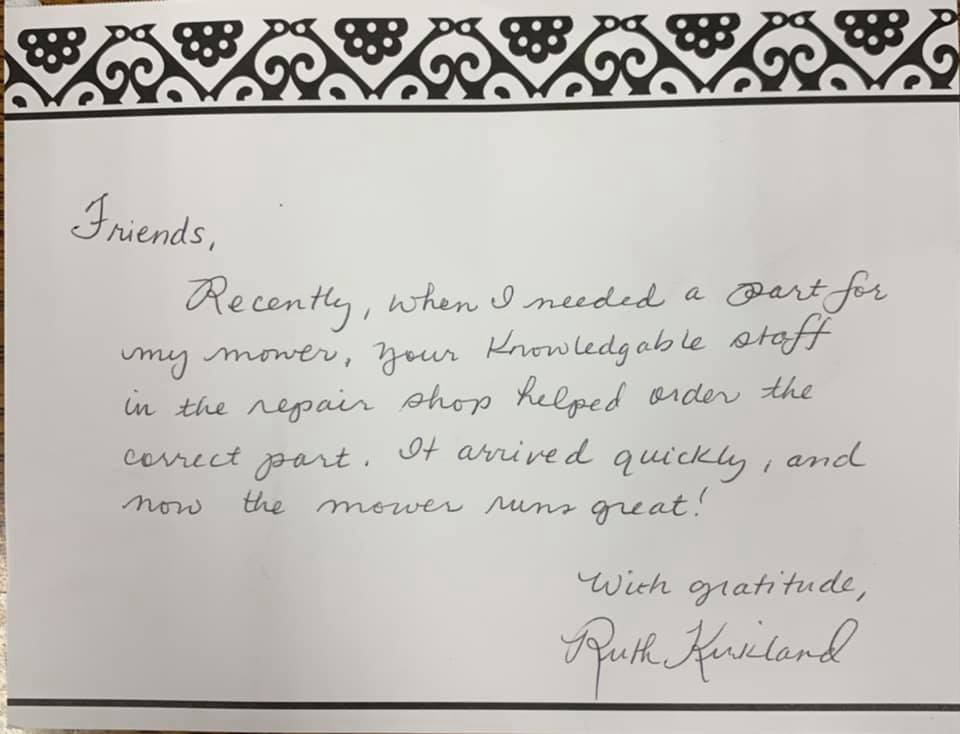 Friends,
Recently, when I needed a part for
my mower, your Knowledgable staff
in the repair shop helped order the
correct part. It arrived quickly, and
now the mower runs great!
With gratitude,
Ruth Kirkland